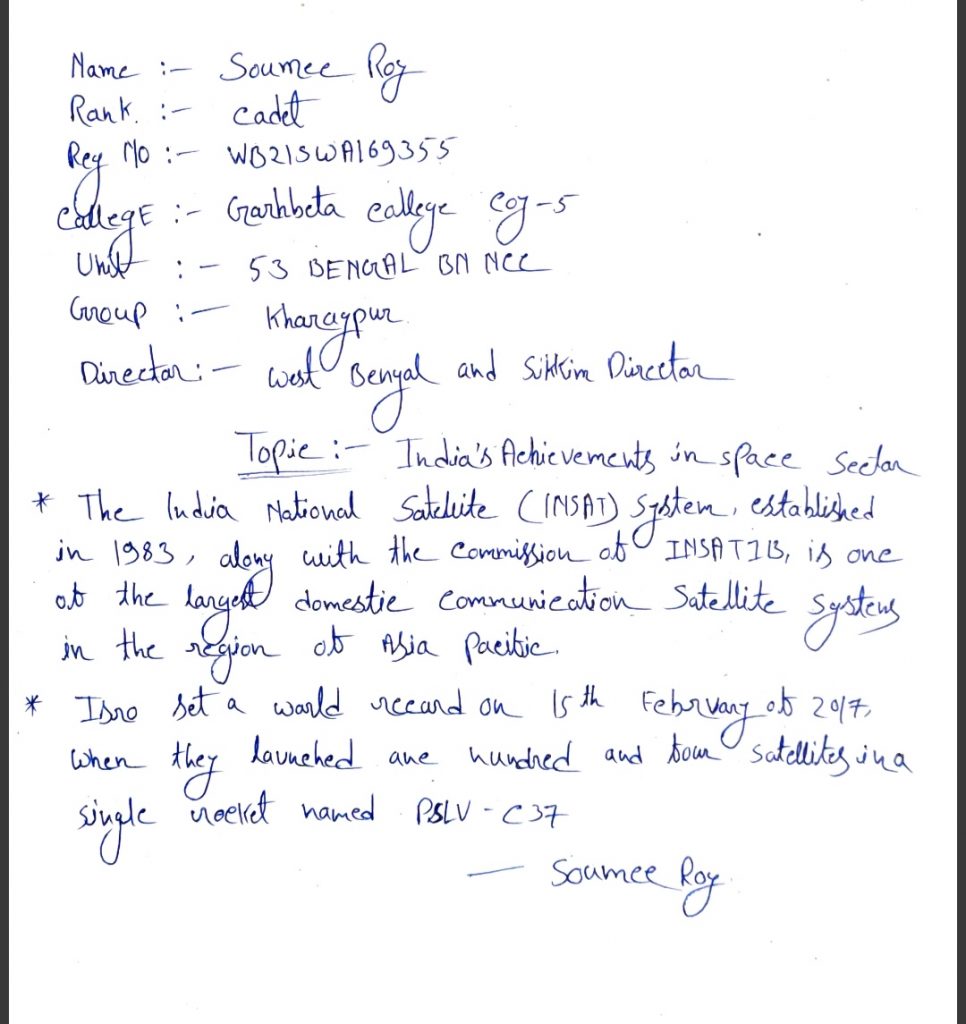 Name :- Soumee Roy
Rank. :- cadet
Reg No :- WB21SWA169355
CollegE :- Garhbeta college coy-5
Unit :- 53 BENGAL BN NCC
Group :- Kharagpur.
Director :- West Bengal and Sikkim Director
Topic :- India's Achievements in space Sector
* The India National Satellite (INSAT) System, established
in 1983, along with the commission of INSAT1B, is one
of the largest domestic communication Satellite systems
in the region of Asia Pacific.
* Isro set a world record on 15th February of 2017,
when they launched one hundred and four satellites in a
single rocket named PSLV - C37
— Soumee Roy.